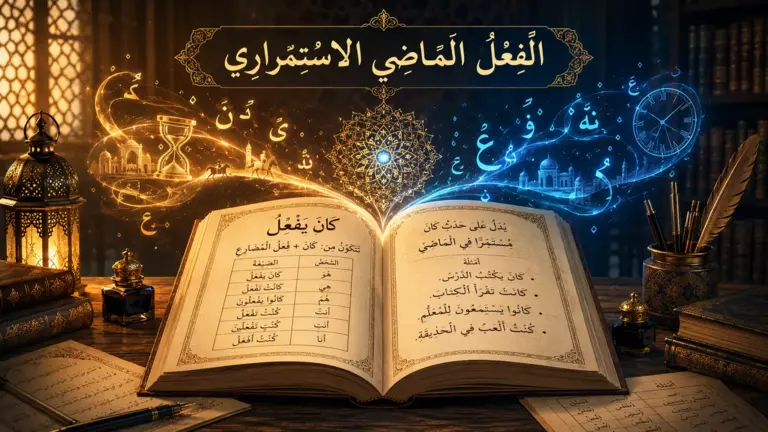 الَّفِعْلُ الَمَّاضِي الاسْتِمْرارِي
كَانَ يَفْعُلُ
تَتَكَوَّنُ مِن: كَانَ + فِعْلُ الْمُضَارِع
الشَّخْصُ الصِّيغَةُ
هُوَ كَانَ يَفْعَلُ
هِيَ كَانَتْ تَفْعَلُ
هُمْ كَانُوا يَفْعَلُونَ
أَنْتَ كُنْتَ تَفْعَلُ
أَنْتِ كُنْتِ تَفْعَلِينَ
أَنَا كُنْتُ أَفْعَلُ
يَدُلُّ عَلَى حَدَثٍ كَانَ
مُسْتَمِرًّا فِي الْمَاضِي
أَمْثِلَة:
• كَانَ يَكْتُبُ الدَّرْسَ.
• كَانَتْ تَقْرَأُ الْكِتَابَ.
• كَانُوا يَسْتَمِعُونَ لِلْمُعَلِّمِ.
• كُنْتُ أَلْعَبُ فِي الْحَدِيقَةِ.